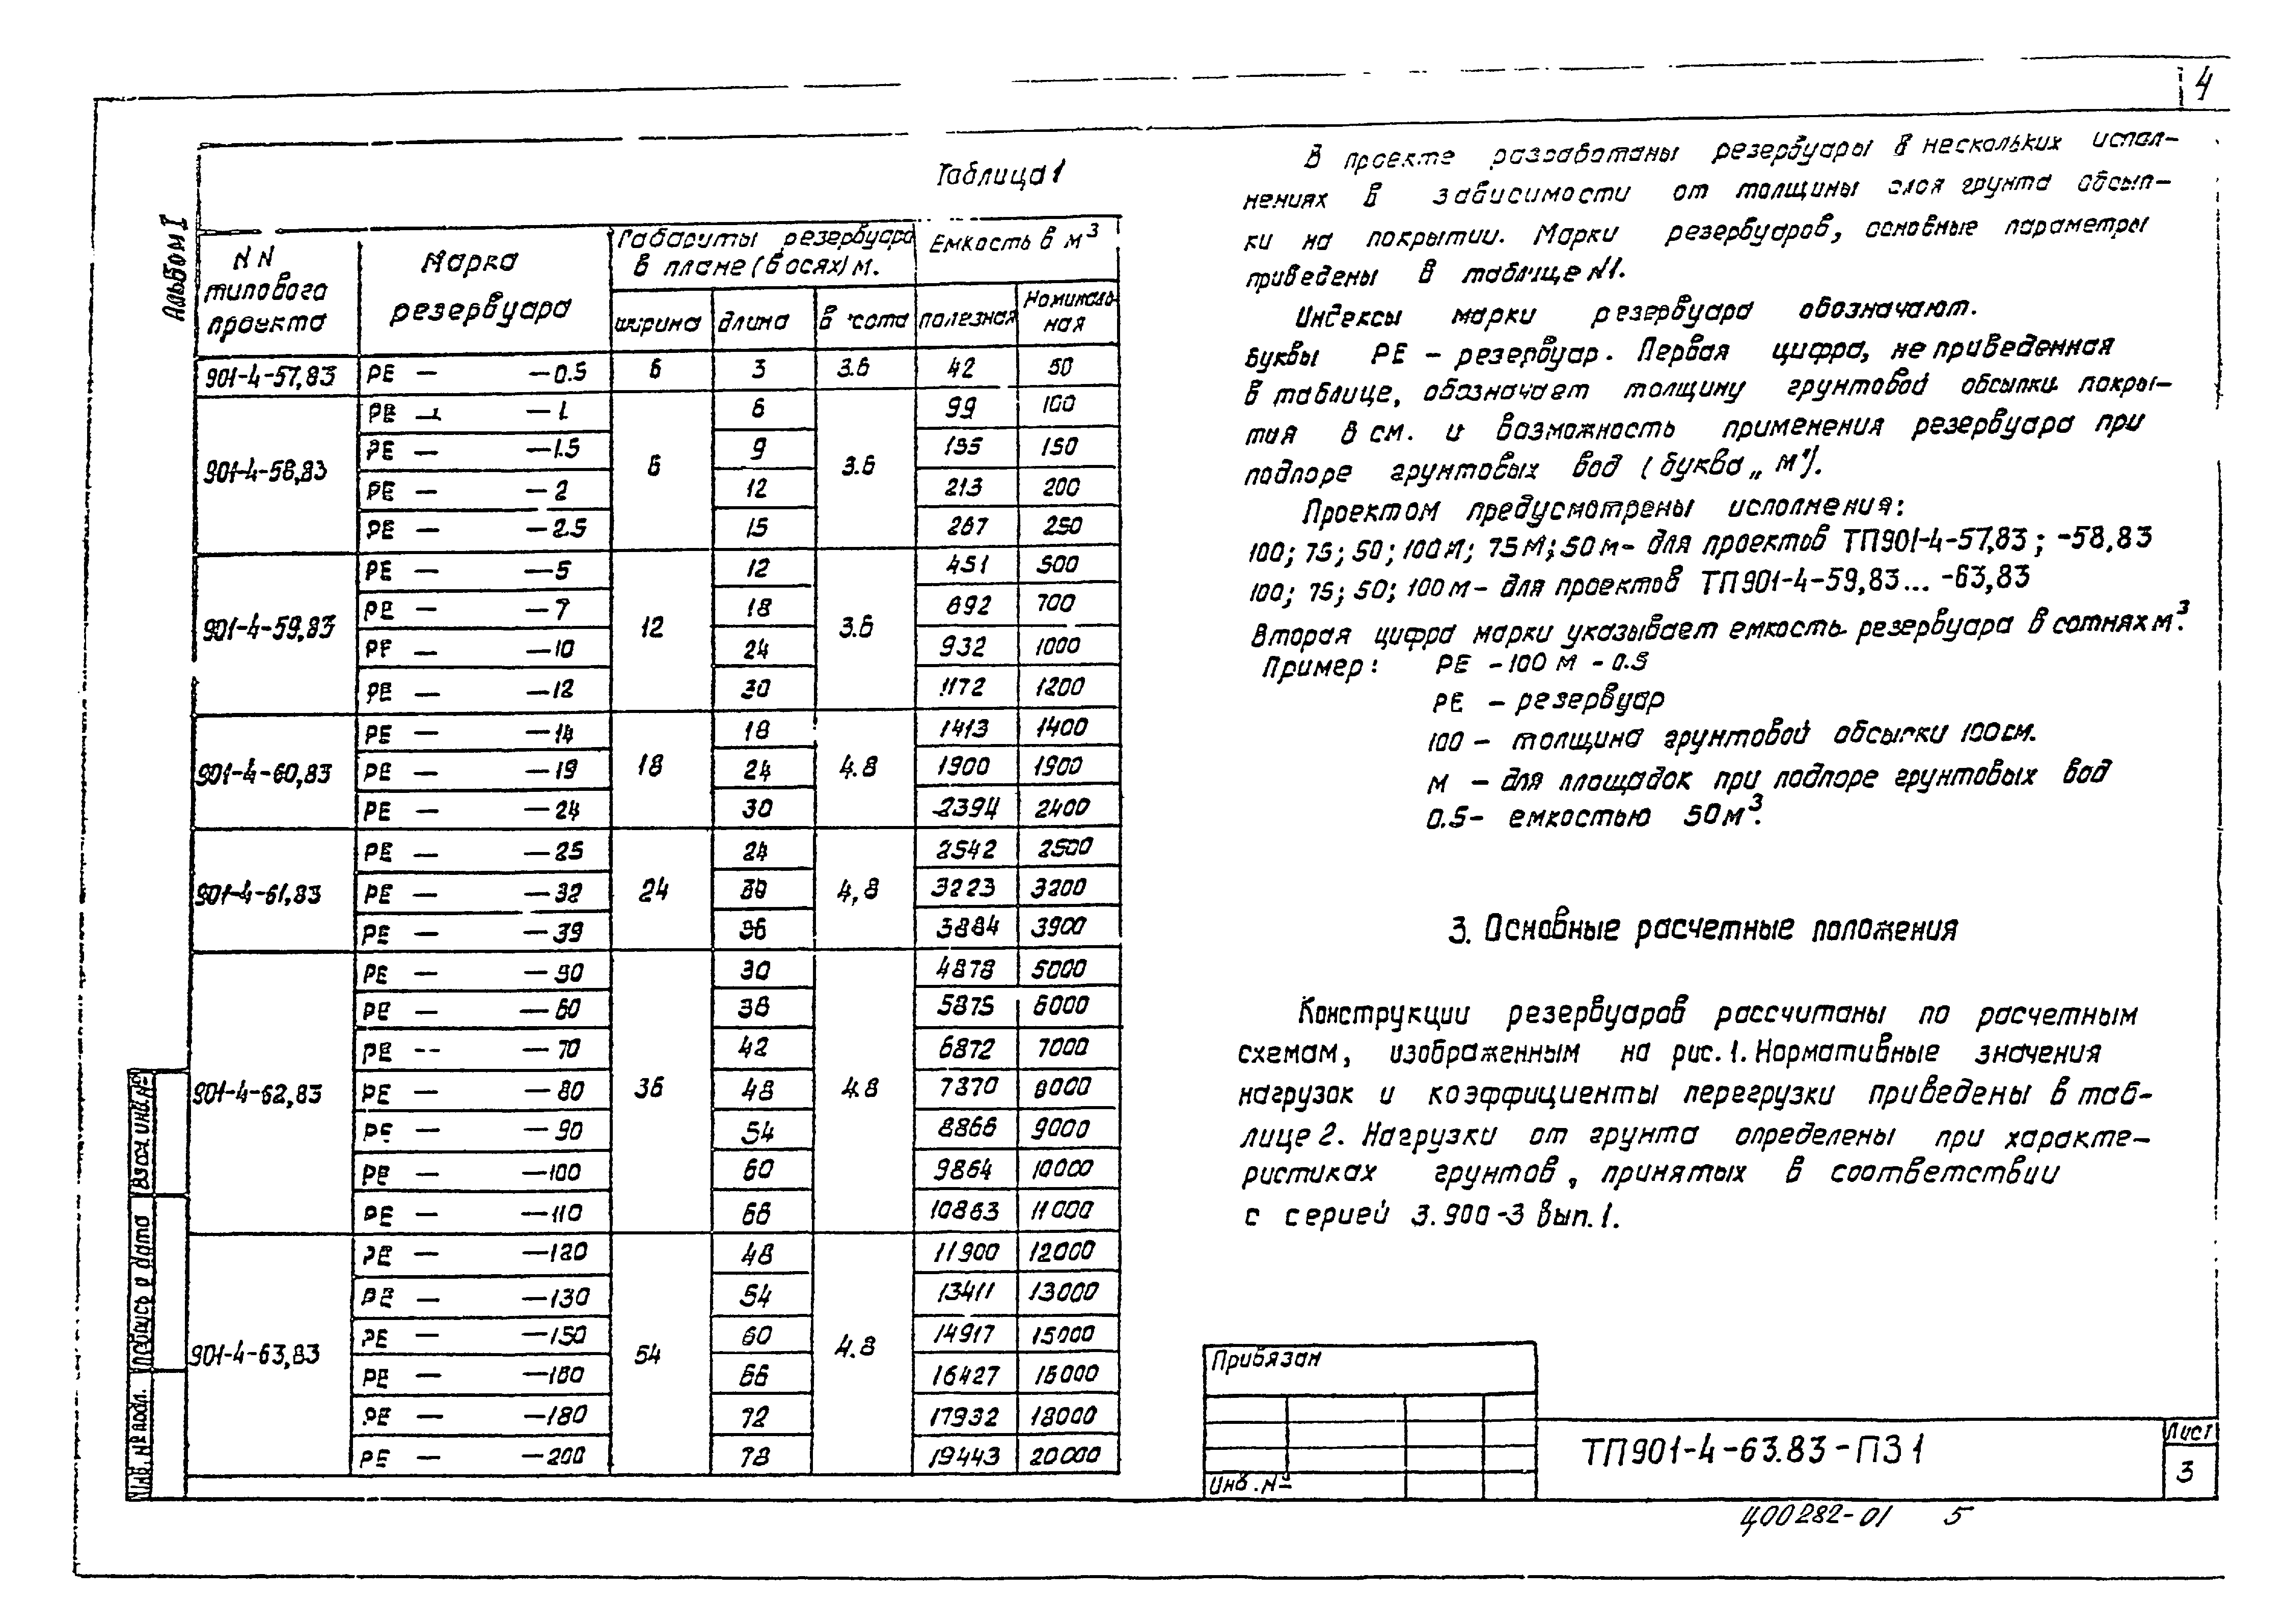 4
Альбом I
Таблица 1
NN типового проекта
Марка резервуара
Габариты резервуара в плане (в осях) м.
Емкость в м³
ширина длина в сота полезная Номиналь-ная
901-4-57,83 РЕ — —0.5 6 3 3.6 42 50
901-4-58,83 6 3.6
РЕ — —1 6 99 100
РЕ — —1.5 9 155 150
РЕ — —2 12 213 200
РЕ — —2.5 15 267 250
901-4-59,83 12 3.6
РЕ — —5 12 451 500
РЕ — —7 18 692 700
РЕ — —10 24 932 1000
РЕ — —12 30 1172 1200
901-4-60,83 18 4.8
РЕ — —14 18 1413 1400
РЕ — —19 24 1900 1900
РЕ — —24 30 2394 2400
901-4-61,83 24 4,8
РЕ — —25 24 2542 2500
РЕ — —32 30 3223 3200
РЕ — —39 36 3884 3900
901-4-62,83 36 4.8
РЕ — —50 30 4878 5000
РЕ — —60 36 5875 6000
РЕ -- —70 42 6872 7000
РЕ — —80 48 7870 8000
РЕ — —90 54 8866 9000
РЕ — —100 60 9864 10000
РЕ — —110 66 10863 11000
901-4-63,83 54 4.8
РЕ — —120 48 11900 12000
РЕ — —130 54 13411 13000
РЕ — —150 60 14917 15000
РЕ — —160 66 16427 16000
РЕ — —180 72 17932 18000
РЕ — —200 78 19443 20000
В проекте разработаны резервуары в нескольких испол-
нениях в зависимости от толщины слоя грунта обсып-
ки на покрытии. Марки резервуаров, основные параметры
приведены в таблице N1.
Индексы марки резервуара обозначают.
буквы РЕ – резервуар. Первая цифра, не приведенная
в таблице, обозначает толщину грунтовой обсыпки покры-
тия в см. и возможность применения резервуара при
подпоре грунтовых вод (буква „М").
Проектом предусмотрены исполнения:
100; 75; 50; 100М; 75М; 50М- для проектов ТП901-4-57,83; -58,83
100; 75; 50; 100М- для проектов ТП901-4-59,83... -63,83
Вторая цифра марки указывает емкость резервуара в сотнях м³.
Пример: РЕ -100 М -0.5
РЕ – резервуар
100 – толщина грунтовой обсыпки 100см.
М – для площадок при подпоре грунтовых вод
0.5- емкостью 50м³.
3. Основные расчетные положения
Конструкции резервуаров рассчитаны по расчетным
схемам, изображенным на рис. 1. Нормативные значения
нагрузок и коэффициенты перегрузки приведены в таб-
лице 2. Нагрузки от грунта определены при характе-
ристиках грунтов, принятых в соответствии
с серией 3.900-3 вып. 1.
Взам. инв. №
Подпись и дата
Инв. № подл.
Привязан
Инв. №
ТП901-4-63.83-ПЗ 1
Лист
3
400282-01 5